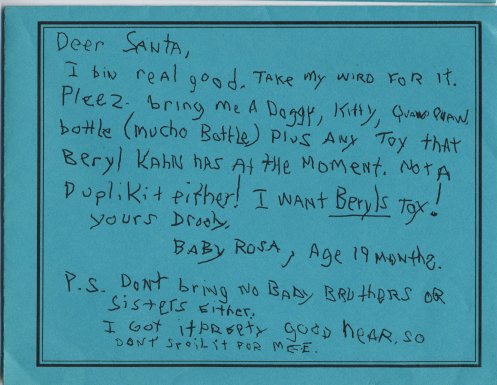 Deer SANTA,
I bin real good. TAKE my WIRD FOR it.
Pleez bring me A Doggy, Kitty, QUAWK QUAWK
bottle (mucho Bottle) plus ANY Toy that
Beryl KAHN HAS At the MOMENT. Not A
DupliKit either! I WANT Beryls Toy!
yours Drooly,
BABY ROSA, Age 19 MONTHS.
P.S. DONT bring NO BABY BRUTHERS OR
SISTERS EITHER.
I GOt it pretty good heAR, SO
DONT SPOIL it FOR MEE.